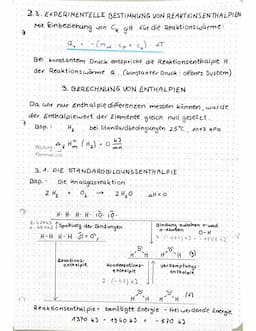 2.3. EXPERIMENTELLE BESTIMMUNG VON REAKTIONSENTHALPIEN
Mit Einbeziehung von Ck gilt für die Reaktionswärme:
Qr = -(mw · cp + Ck) · ΔT
Bei konstantem Druck entspricht die Reaktionsenthalpie H
der Reaktionswärme Q. (konstanter Druck: offenes System)
3. BERECHNUNG VON ENTHALPIEN
Da wir nur Enthalpiedifferenzen messen können, wurde
der Enthalpiewert der Elemente gleich null gesetzt.
Bsp.: H2 bei Standardbedingungen 25°C, 1013 hPa
ΔfHm° (H2) = 0 kJ/mol
3.1. DIE STANDARDBILDUNGSENTHALPIE
Bsp.: Die Knallgasreaktion
2 H2 + O2 → 2 H2O ΔH<0
H· H· H· H· ·O· ·O·
Spaltung der Bindungen
Bindung zwischen H- und
O-H
H-H H-H O=O
Reaktions-
enthalpie
Kondensations-
enthalpie
Verdampfungs-
enthalpie
(g)
(l)
Reaktionsenthalpie: benötigte Energie - freiwerdende Energie
1370 kJ - 1940 kJ = -570 kJ